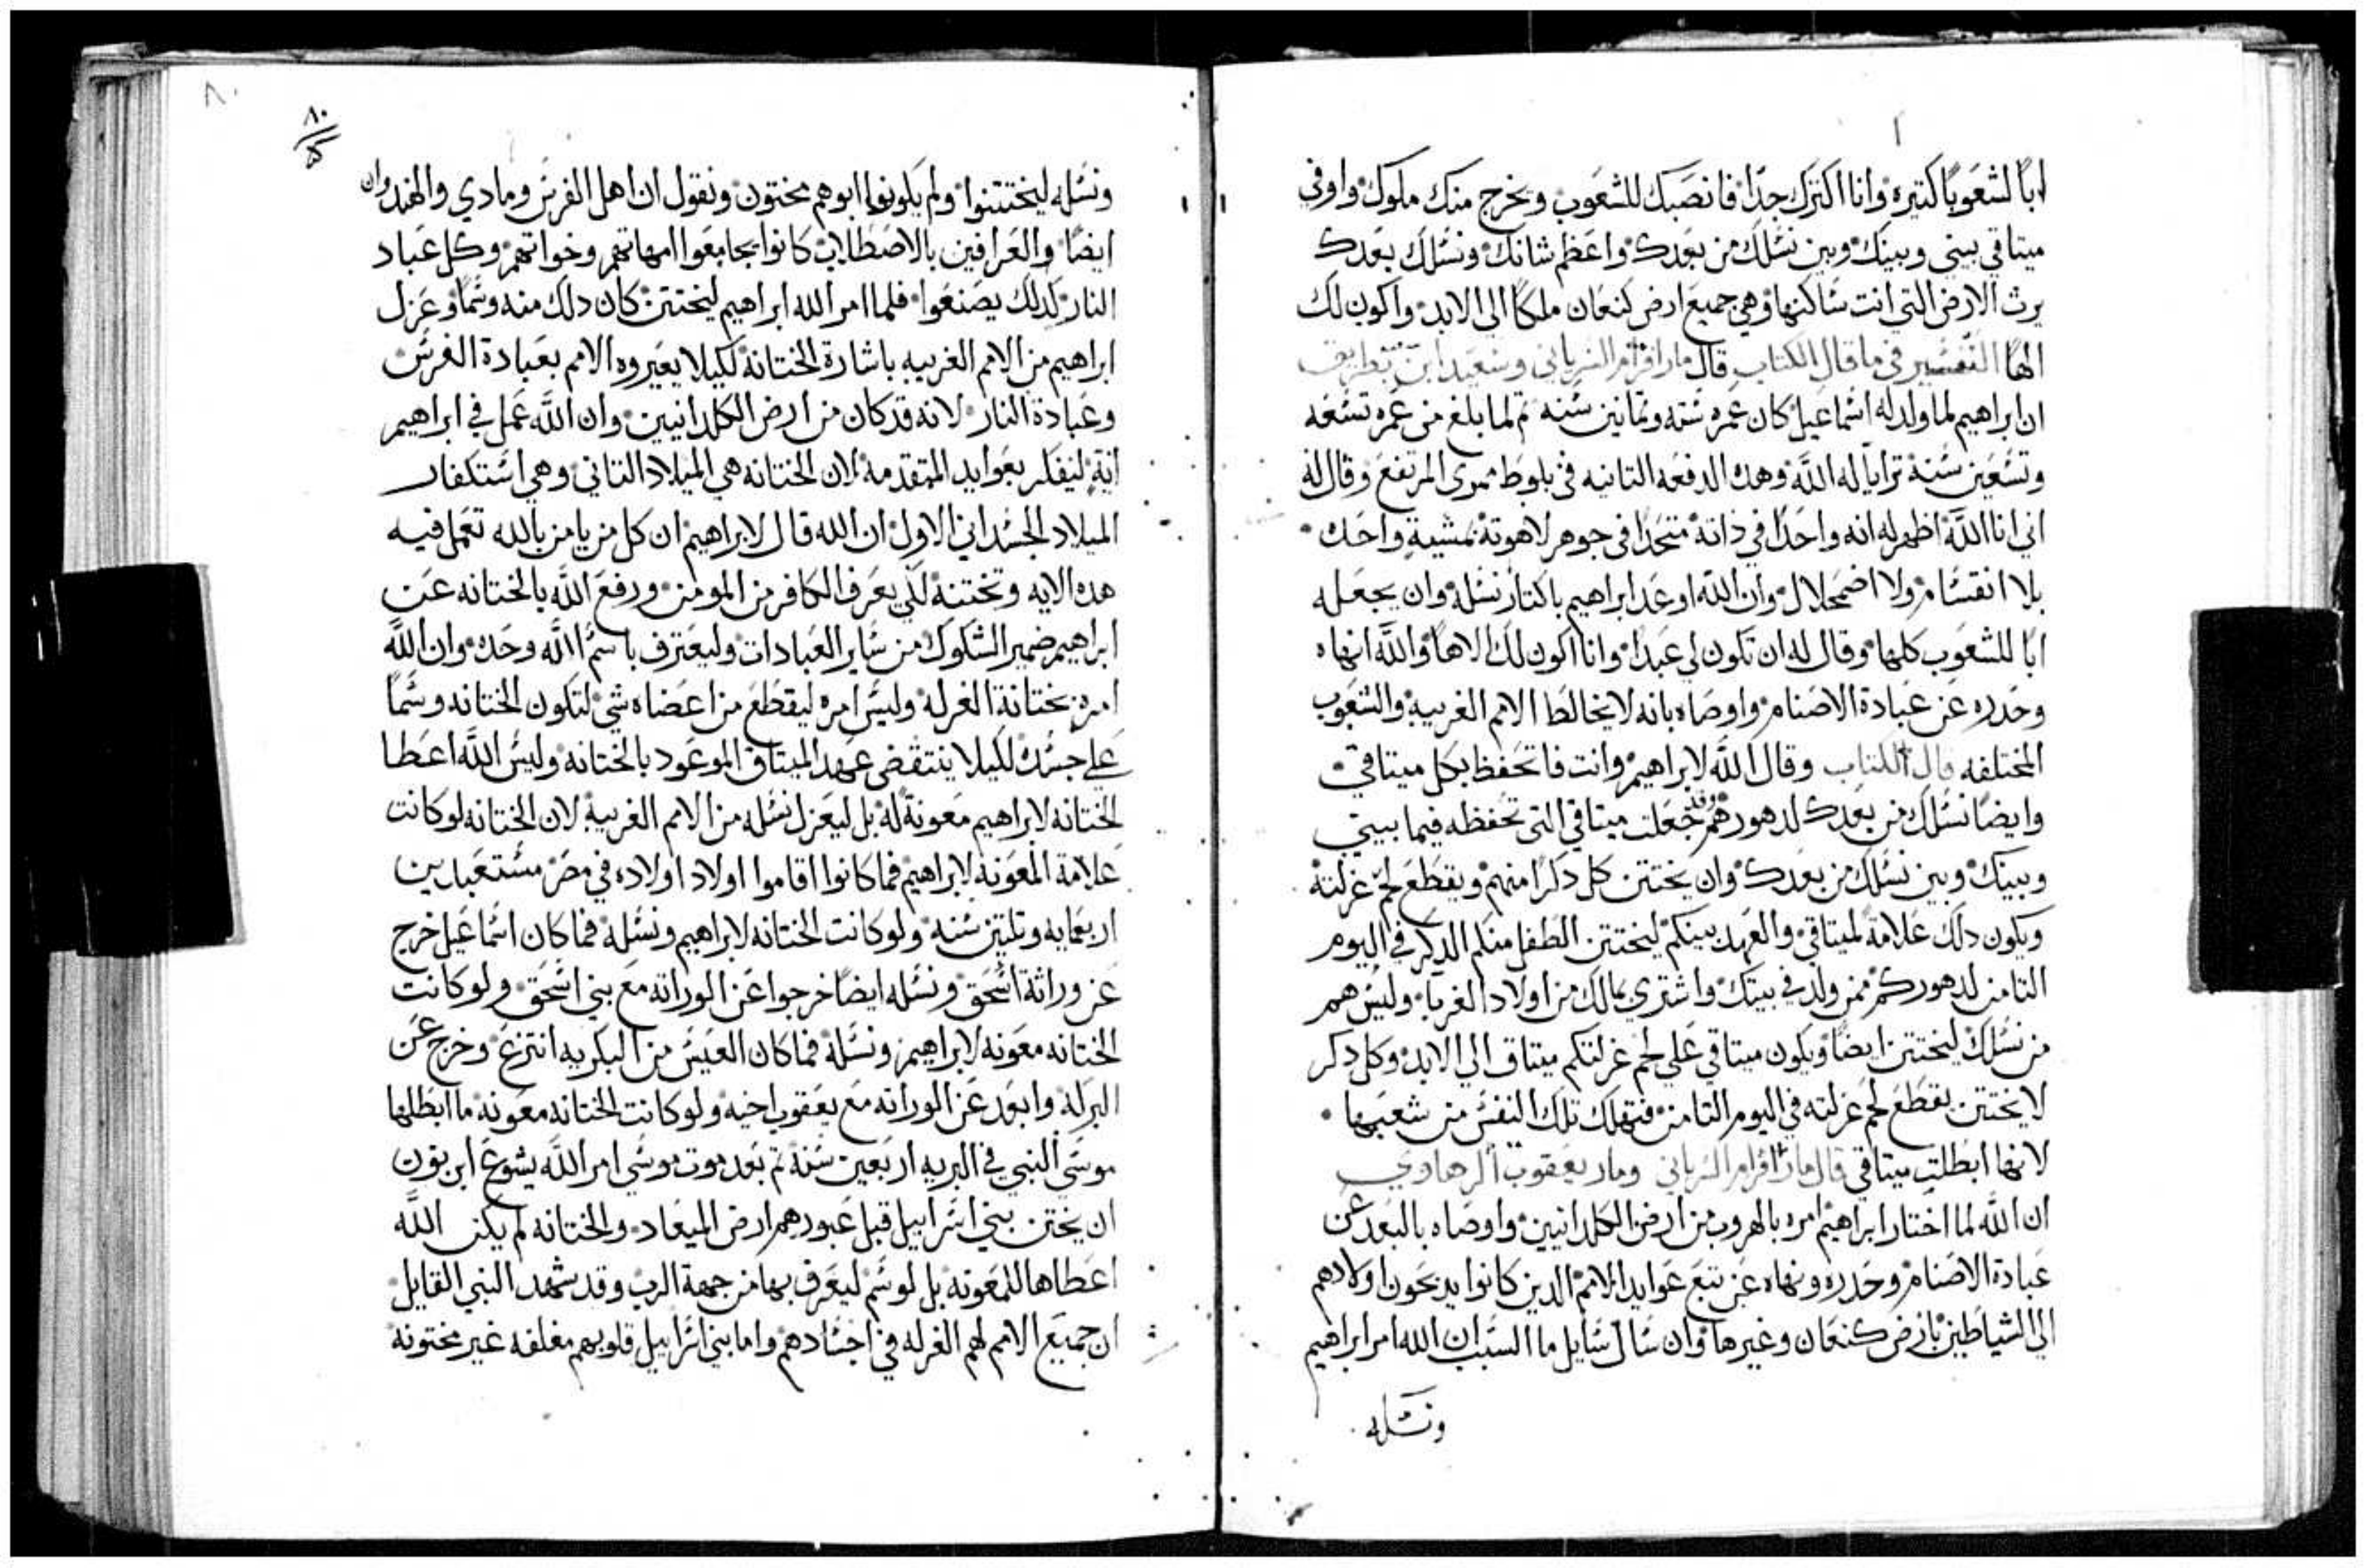 ابًا لشعوبًا كتيره وانا اكترك جدًا فانصبك للشعوب ويخرج منك ملوك واوفي
ميتاقي بيني وبينك وبين نسلك من بعدك واعظم شانك ونسلك بعدك
يرث الارض التي انت ساكنها وهي جميع ارض كنعان ملكًا الي الابد واكون لك
الهًا التفسير في ما قال الكتاب قال مار افرام السرياني وسعيد ابن بطريق
ان ابراهيم لما ولد له اسماعيل كان عمره سته وتمانين سنه تم لما بلغ من عمره تسعه
وتسعين سنة ترايا له الله وهده الدفعه التانيه في بلوط ممرى المرتفع وقال له
اني انا الله اظهر له انه واحدًا في ذاته متحدًا في جوهر لاهوته بمشيةٍ واحده
بلا انقسام ولا اضمحلال وان الله اوعد ابراهيم باكتار نسله وان يجعله
ابًا للشعوب كلها وقال له ان تكون لي عبدًا وانا اكون لك الاهًا والله انهاه
وحدره عن عبادة الاصنام واوصاه بانه لا يخالط الامم الغريبه والشعوب
المختلفه قال الكتاب وقال الله لابراهيم وانت فاتحفظ بكل ميتاقي
وايضًا نسلك من بعدك لدهورهم وقد جعلت ميتاقي التي تحفظه فيما بيني
وبينك وبين نسلك من بعدك وان يختتن كل دكرًا منهم ويقطع لحم غرلته
ويكون دلك علامة لميتاقي والعهد بينكم ليختتن الطفل منكم الدكر في اليوم
التامن لدهوركم ممن ولد في بيتك واشتري بمالك من اولاد الغربا وليس هم
من نسلك ليختتن ايضًا ويكون ميتاقي علي لحم غرلتكم ميتاق الي الابد وكل دكر
لا يختتن يقطع لحم غرلته في اليوم التامن فتهلك تلك النفس من شعبها
لانها ابطلت ميتاقي قال مار افرام السرياني ومار يعقوب الرهاوي
ان الله لما اختار ابراهيم امره بالهروب من ارض الكلدانيين واوصاه بالبعد عن
عبادة الاصنام وحدره ونهاه عن تتبع عوايد الامم الدين كانوا يدبحون اولادهم
الي الشياطين بارض كنعان وغيرها وان سال سايل ما السبب ان الله امر ابراهيم
ونسله
٨٠
٨٠
ونسله ليختتنوا ولم يكونوا ابوهم مختون ونقول ان اهل الفرس ومادي والهند وان
ايضًا والعرافين بالاصطلاب كانوا يجامعوا امهاتهم وخواتهم وكل عباد
النار كدلك يصنعوا فلما امر الله ابراهيم ليختتن كان دلك منه وسمًا وعزل
ابراهيم من الامم الغريبه باشارة الختانه لكيلا يعيروه الامم بعبادة الفرس
وعبادة النار لانه قد كان من ارض الكلدانيين وان الله عمل في ابراهيم
ايةٍ ليفكر بعوايد المتقدمه لان الختانه هي الميلاد التاني وهي استكفار
الميلاد الجسداني الاول ان الله قال لابراهيم ان كل من يامن بالله تعمل فيه
هده الايه وتختنه لكي يعرف الكافر من المومن ورفع الله بالختانه عن
ابراهيم ضمير الشكوك من ساير العبادات وليعترف باسم الله وحده وان الله
امره بختانة الغرله وليس امره ليقطع من اعضاه شي لتكون الختانه وسمًا
علي جسده لكيلا ينتقض عهد الميتاق الموعود بالختانه وليس الله اعطا
الختانه لابراهيم معونة له بل ليعزل نسله من الامم الغريبه لان الختانه لو كانت
علامة المعونه لابراهيم فما كانوا اقاموا اولاد اولاده في مصر مستعبدين
اربعمايه وتلتين سنه ولو كانت الختانه لابراهيم ونسله فما كان اسماعيل خرج
عن وراثة اسحق ونسله ايضًا خرجوا عن الوراته مع بني اسحق ولو كانت
الختانه معونه لابراهيم ونسله فما كان العيس من البكريه انتزع وخرج عن
البركه وابعد عن الوراته مع يعقوب اخيه ولو كانت الختانه معونه ما ابطلها
موسى النبي في البريه اربعين سنة تم بعد موت موسي امر الله يشوع ابن نون
ان يختن بني اسراييل قبل عبورهم ارض الميعاد والختانه لم يكن الله
اعطاها للمعونه بل لوسم ليعرف بها من جهة الرب وقد شهد النبي القايل
ان جميع الامم لهم الغرله في اجسادهم واما بني اسراييل قلوبهم مغلفه غير مختونه